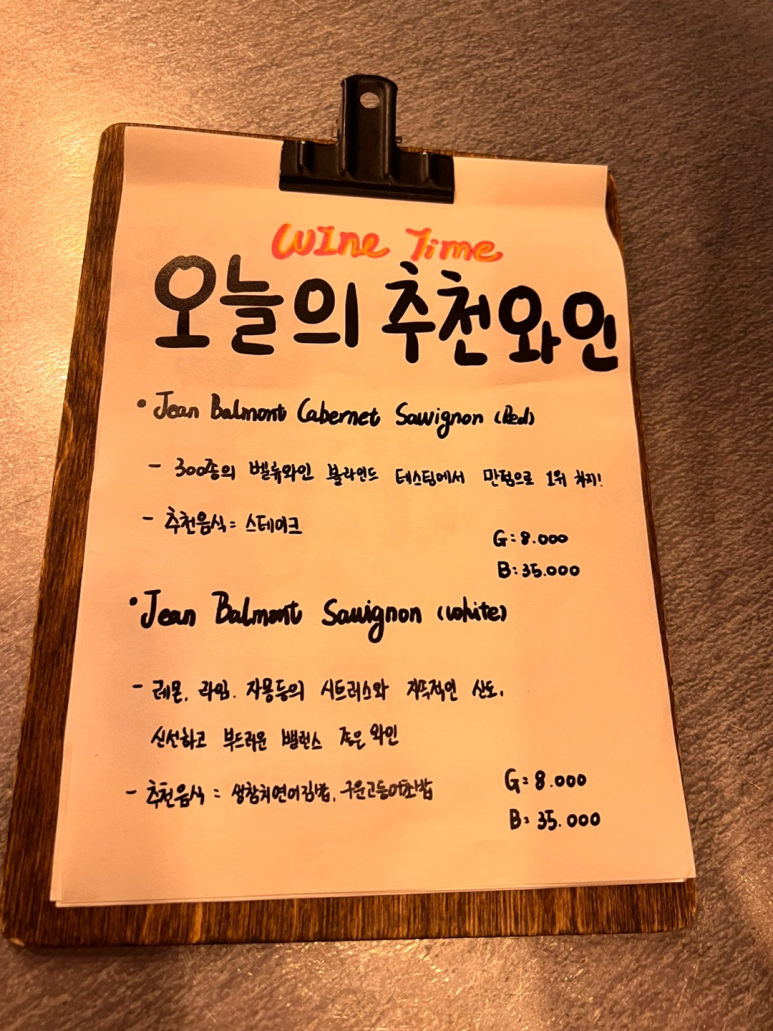 WINE Time
오늘의 추천와인
• Jean Balmont Cabernet Sauvignon (Red)
- 300종의 밸류와인 블라인드 테스팅에서 만점으로 1위 차지!
- 추천음식 = 스테이크
G: 8.000
B: 35.000
• Jean Balmont Sauvignon (white)
- 레몬, 라임, 자몽등의 시트러스와 지속적인 산도,
신선하고 부드러운 밸런스 좋은 와인
- 추천음식 = 생참치연어김밥, 구운고등어초밥
G: 8.000
B: 35.000